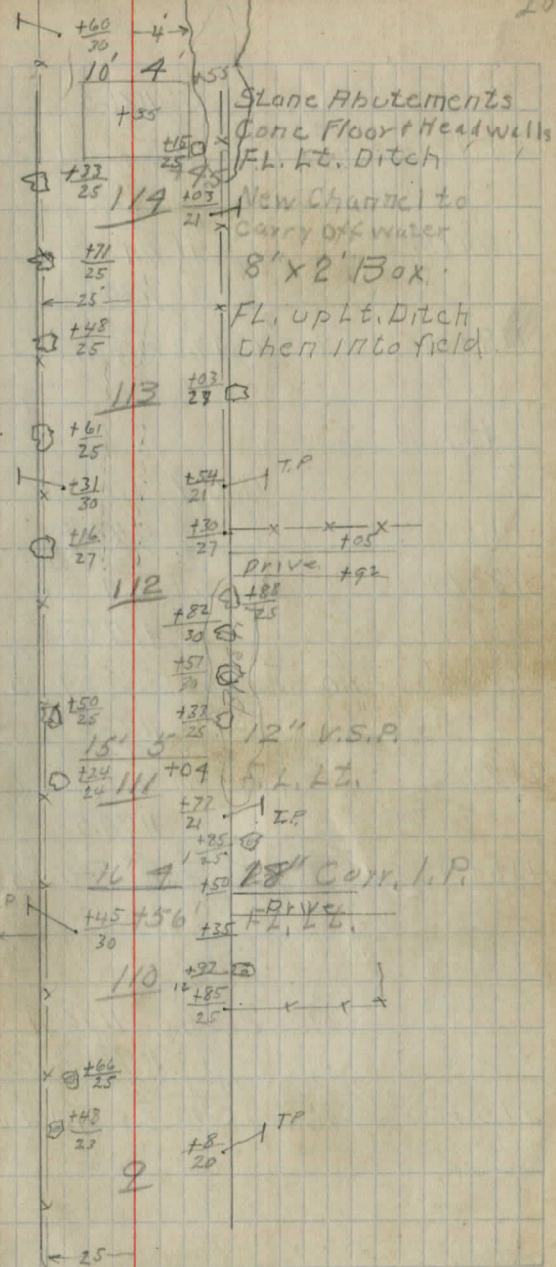 +60/30 4'
10' 4' +55
+35
Stone Abutements
Conc Floor + Headwalls
+15/25
FL. Lt. Ditch
+33/25
+45
114 +03/21
New Channel to
Carry off water
+71/25
8" x 2' Box
25'
FL. up Lt. Ditch
+48/25
then into field
113 +03/28
+61/25
+54/21 T.P.
+31/30
+30/27
+05
+16/27
Drive +92
112
+88/25
+82/30
+57/30
+50/25
+33/25
12" V.S.P.
15' 5'
+24/24 111 +04
F.L. Lt.
+77/21 T.P.
+85/25
16' 4' +50
18" Corr. I.P.
Drive
+45/30 +56
+35
FL. Lt.
110 +92/12
+85/25
+66/25
+48/23
+8/20 TP
9
25